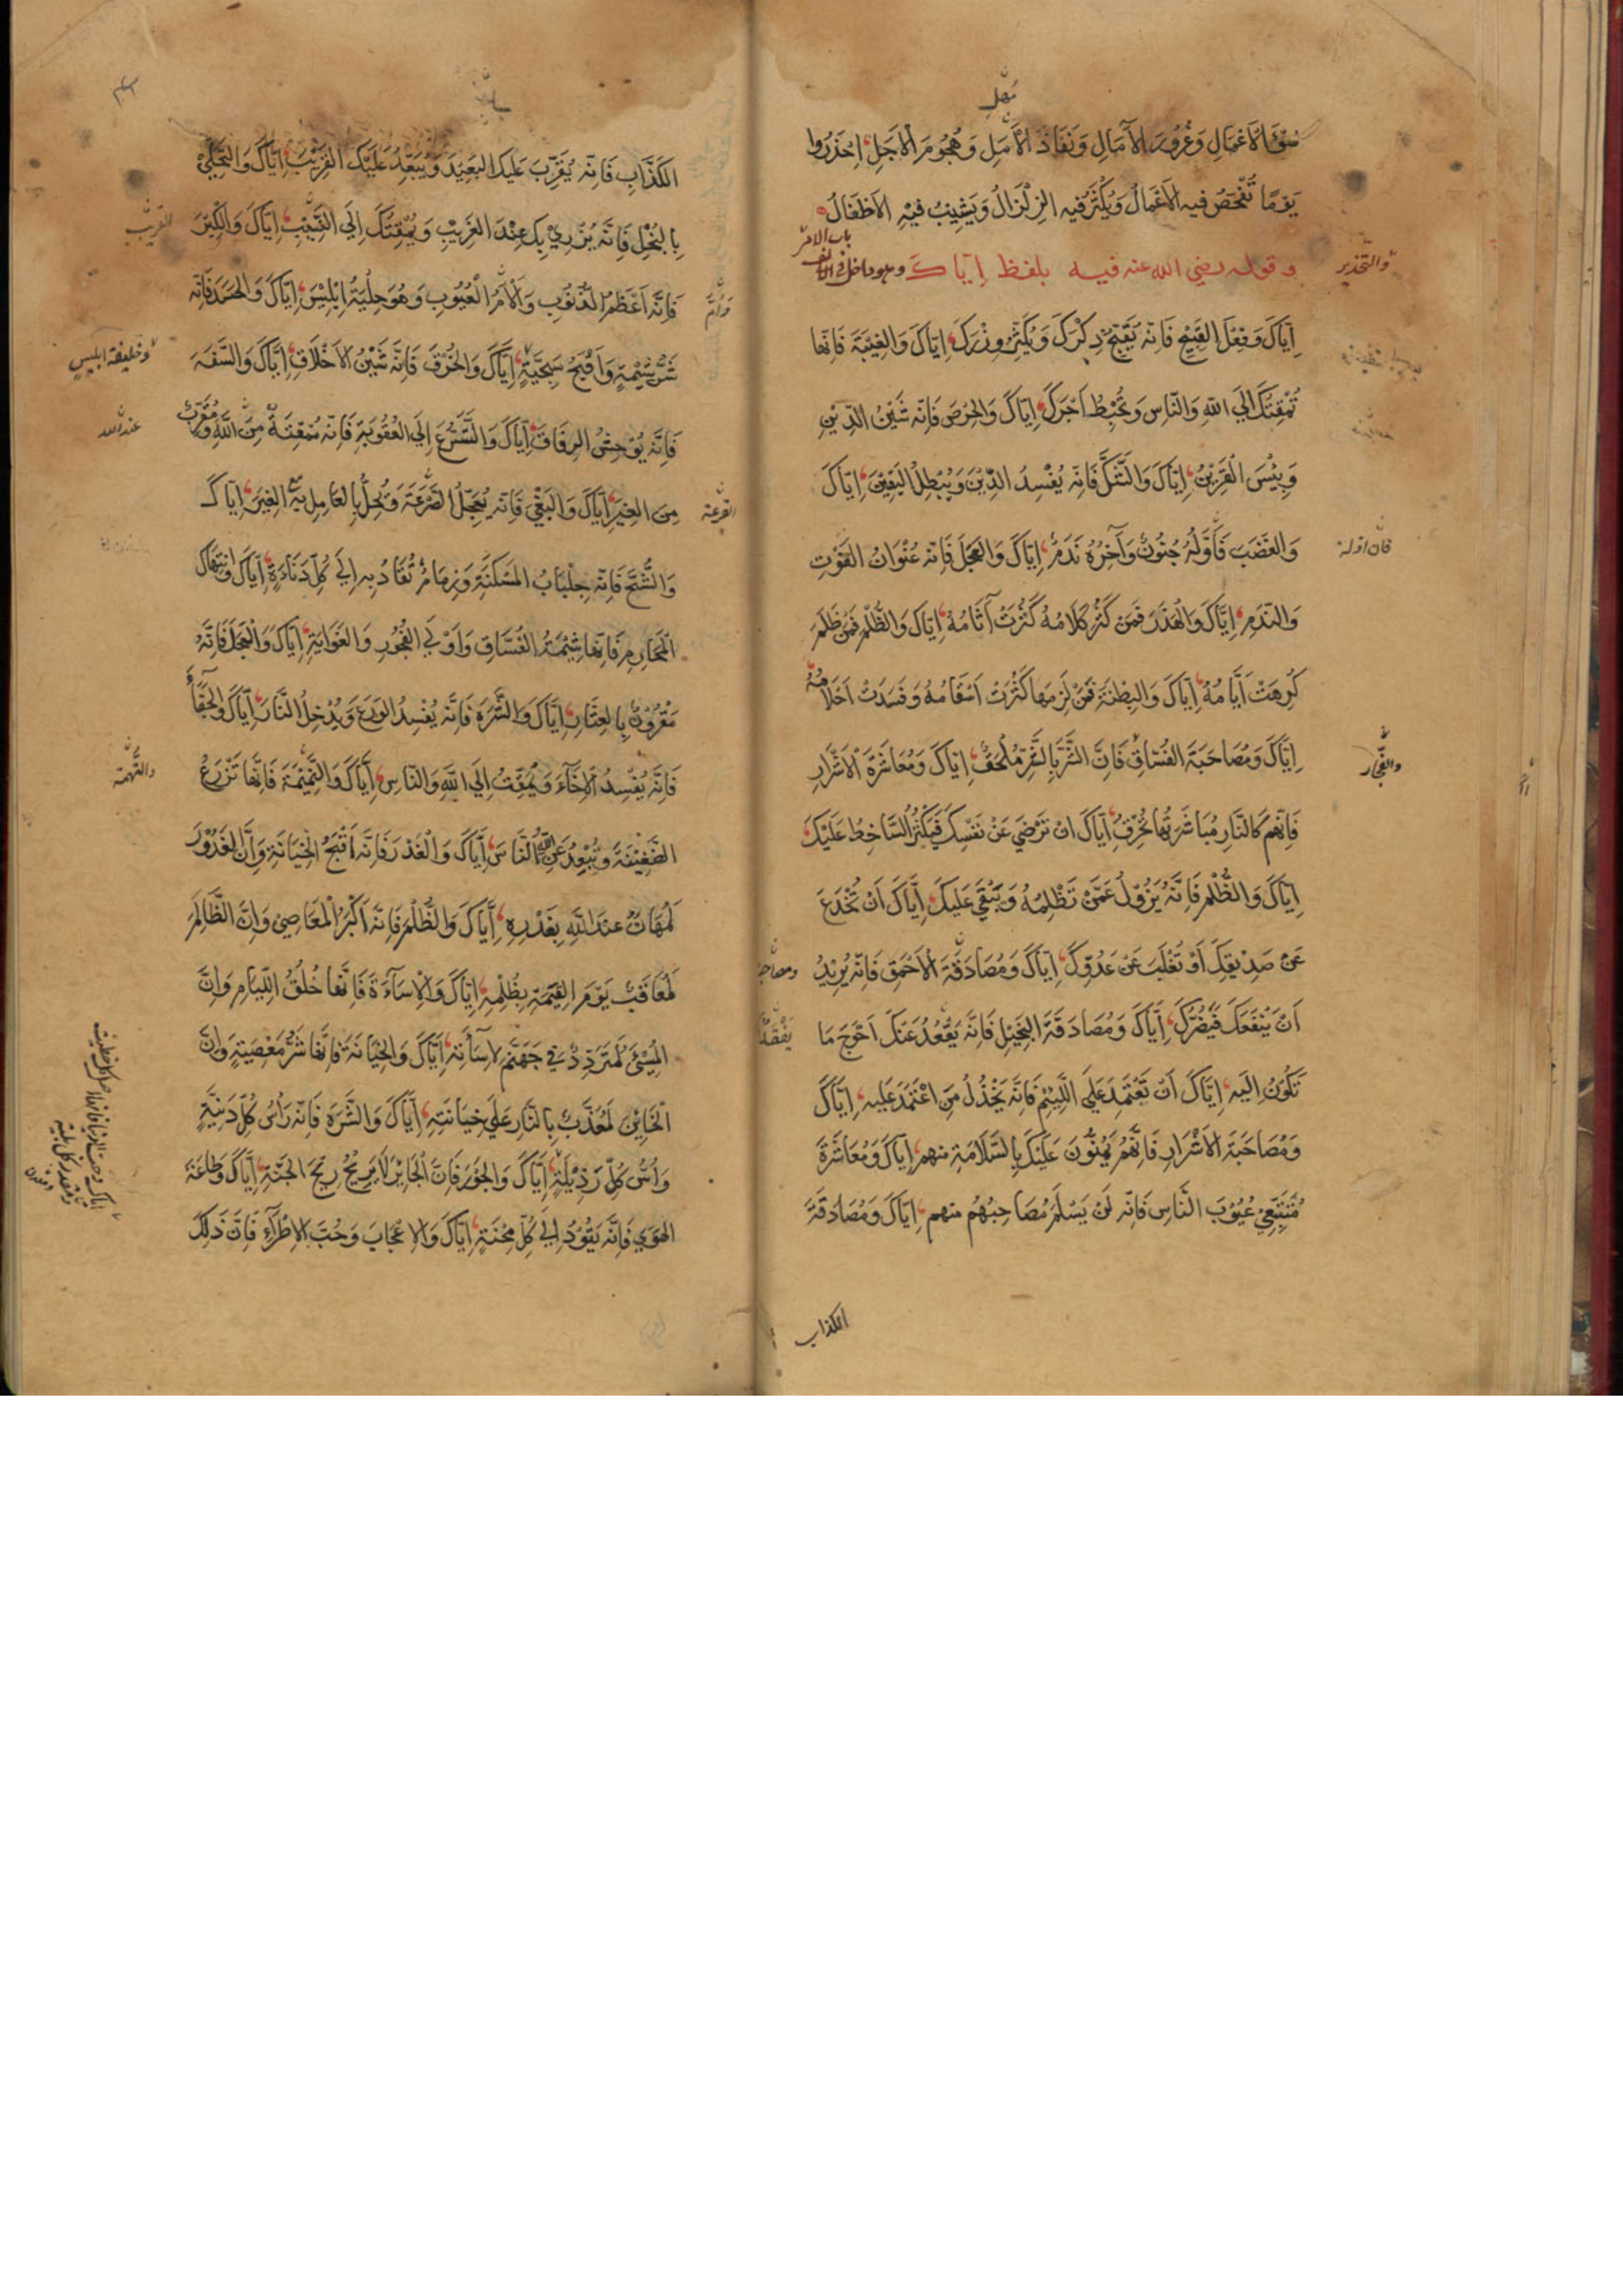 سُوْءَ الْاَعْمَالِ وَغُرُوْرَ الْآمَالِ وَنَفَاذَ الْاَمَلِ وَهُجُوْمَ الْاَجَلِ اِحْذَرُوا
يَوْمًا تُفْحَصُ فيه الْاَعْمَالُ وَيَكْثُرُ فيه الزِلْزَالُ وَيَشِيْبُ فيْهِ الْاَطْفَالُ
باب الامر
والتحذير
وقوله رضي الله عنه فيه بلفظ اِيّاكَ وهو داخل في الالف
اِيَّاكَ وَفِعْلَ القَبِيْحِ فَاِنّه يُقَبِّحُ ذِكْرَكَ وَيُكَثِّرُ وِزْرَكَ اِيَّاكَ وَالغِيْبَةَ فَاِنّهَا
تُمْقِتُكَ اِلَي اللّهِ وَالنَّاسِ وَتُحْبِطُ اَجْرَكَ اِيَّاكَ وَالْحِرْصَ فَاِنّه شَيْنُ الدِّيْنِ
وَبِئْسَ الْقَرِيْنُ اِيَّاكَ وَالشَّكَّ فَاِنّه يُفْسِدُ الدِّيْنَ وَيُبْطِلُ اليَقِيْنَ اِيَّاكَ
وَالغَضَبَ فَاَوَّلُهُ جُنُونٌ وَآخِرُهُ نَدَمٌ اِيَّاكَ وَالعَجَلَ فَاِنّه عُنْوَانُ الفَوْتِ
فان اوله
وَالنَّدَمِ اِيَّاكَ وَالْهَذَرَ فَمَنْ كَثُرَ كَلَامُهُ كَثُرَتْ آثَامُهُ اِيَّاكَ وَالظُّلْمَ فَمَنْ ظَلَمَ
كَرِهَتْ اَيَّامُهُ اِيَّاكَ وَالبِطْنَةَ فَمَنْ لَزِمَهَا كَثُرَتْ اَسْقَامُهُ وَفَسَدَتْ اَحْلَامُهُ
اِيَّاكَ وَمُصَاحَبَةَ الفُسَّاقِ فَاِنَّ الشَّرَّ بِالشَّرِّ مُلْحَقٌ اِيَّاكَ وَمُعَاشَرَةَ الْاَشْرَارِ
والفجار
فَاِنّهم كَالنَّارِ مُبَاشَرَتُهَا تُحْرِقُ اِيَّاكَ اَنْ تَرْضَي عَنْ نَفْسِكَ فَيَكْثُرُ السَّاخِطُ عَلَيْكَ
اِيَّاكَ وَالظُّلْمَ فَاِنَّهُ يَزُوْلُ عَمَّنْ تَظْلِمُهُ وَيَبْقَي عَلَيْكَ اِيَّاكَ اَنْ تُخْدَعَ
عَنْ صَدِيْقِكَ اَوْ تُغْلَبَ عَنْ عَدُوِّكَ اِيَّاكَ وَمُصَادَقَةَ الْاَحْمَقِ فَاِنّه يُرِيْدُ
اَنْ يَنْفَعَكَ فَيَضُرَّكَ اِيَّاكَ وَمُصَادَقَةَ البَخِيْلِ فَاِنَّه يَقْعُدُ عَنْكَ اَحْوَجَ مَا
تَكُوْنُ اِلَيه اِيَّاكَ اَنْ تَعْتَمِدَ عَلَي اللَّئِيْمِ فَاِنَّه يَخْذُلُ مَنِ اعْتَمَدَ عَلَيه اِيَّاكَ
وَمُصَاحَبَةَ الْاَشْرَارِ فَاِنَّهُمْ يَمُنُّوْنَ عَلَيْكَ بِالسَّلَامَةِ منهم اِيَّاكَ وَمُعَاشَرَةَ
مُتَتَبِّعِيْ عُيُوْبِ النَّاسِ فَاِنّه لَنْ يَسْلَمَ مُصَاحِبُهُمْ منهم اِيَّاكَ وَمُصَادَقَةَ
الكذاب
الكَذَّابِ فَاِنّه يُقَرِّبُ عَلَيكَ البَعِيْدَ وَيُبَعِّدُ عَلَيْكَ القَرِيْبَ اِيَّاكَ وَالتَّحَلِّيْ
بِالبُخْلِ فَاِنَّه يُزْرِيْ بِكَ عِنْدَ الغَرِيْبِ وَيُمْقِتُكَ اِلَي القَرِيْبِ اِيَّاكَ وَالْكِبْرَ
القريب
فَاِنَّه اَعْظَمُ الذُّنُوْبِ وَاَلْاَمُ الْعُيُوْبِ وَهُوَ حِلْيَةُ اِبْلِيْسَ اِيَّاكَ وَالْحَسَدَ فَاِنّه
شَرُّ شِيْمَةٍ وَاَقْبَحُ سَجِيَّةٍ اِيَّاكَ وَالْخُرْقَ فَاِنَّه شَيْنُ الْاَخْلَاقِ اِيَّاكَ وَالسَّفَهَ
وخليقة ابليس
فَاِنَّه يُوْحِشُ الرِفَاقَ اِيَّاكَ وَالتَّسَرُّعَ اِلَي الْعُقُوْبَةِ فَاِنّه مَمْقَتَةٌ مِنَ اللّهِ وَمُقَرِّبٌ
عند الله
مِنَ الغِيَرِ اِيَّاكَ وَالبَغْيَ فَاِنّه يُعَجِّلُ الصَّرْعَةَ وَيُحِلُّ بِالعَامِلِ بِهِ الغِيَرَ اِيَّاكَ
وَالشُّحَّ فَاِنّه جِلْبَابُ المَسْكَنَةِ وَزِمَامٌ تُقَادُ بِهِ اِلَي كُلِّ دَنَاءَةٍ اِيَّاكَ وَانْتِهَاكَ
الْمَحَارِمِ فَاِنّهَا شِيْمَةُ الفُسَّاقِ وَاُوْلِي الفُجُوْرِ وَالغَوَايَةِ اِيَّاكَ وَالْعَجَلَ فَاِنَّهُ
مَقْرُوْنٌ بِالعِثَارِ اِيَّاكَ وَالشَّرَهَ فَاِنَّه يُفْسِدُ الوَرَعَ وَيُدْخِلُ النَّارَ اِيَّاكَ وَالجَفَاءَ
فَاِنَّه يُفْسِدُ الْاِخَاءَ وَيُمَقِّتُ اِلَي اللّهِ وَالنَّاسِ اِيَّاكَ وَالنَّمِيْمَةَ فَاِنَّهَا تَزْرَعُ
الضَّغِيْنَةَ وَتُبْعِدُ عَنِ اللّهِ وَالنَّاسِ اِيَّاكَ وَالْغَدْرَ فَاِنَّه اَقْبَحُ الْخِيَانَةِ وَاِنَّ الغَدُوْرَ
لَمُهَانٌ عِنْدَ اللّهِ بِغَدْرِهِ اِيَّاكَ وَالظُّلْمَ فَاِنَّه اَكْبَرُ الْمَعَاصِيْ وَاِنَّ الظَّالِمَ
لَمُعَاقَبٌ يَوْمَ القِيٰمَةِ بِظُلْمِهِ اِيَّاكَ وَالْاِسَآءَةَ فَاِنَّهَا خُلُقُ اللِّيَامِ وَاِنَّ
الْمُسِيْئَ لَمُتَرَدٍّ فِي جَهَنَّمَ لاِسَآئَتِهِ اِيَّاكَ وَالْخِيَانَةَ فَاِنَّهَا شَرُّ مَعْصِيَةٍ وَاِنَّ
الْخَايِنَ لَمُعَذَّبٌ بِالنَّارِ عَلَي خِيَانَتِهِ اِيَّاكَ وَالشَّرَهَ فَاِنّه رَأْسُ كُلِّ دَنِيَّةٍ
وَاُسُّ كُلِّ رَذِيْلَةٍ اِيَّاكَ وَالجَوْرَ فَاِنَّ الْجَايِرَ لَا يَرِيْحُ رِيْحَ الجَنَّةِ اِيَّاكَ وَطَاعَةَ
الهَوَي فَاِنَّه يَقُوْدُ اِلَي كُلِّ مِحْنَةٍ اِيَّاكَ وَالْاِعْجَابَ وَحُبَّ الْاِطْرَآءِ فَاِنَّ ذَلِكَ
اياك وحب الدنيا فانها اصل كل خطيئة
ومعدن كل بلية